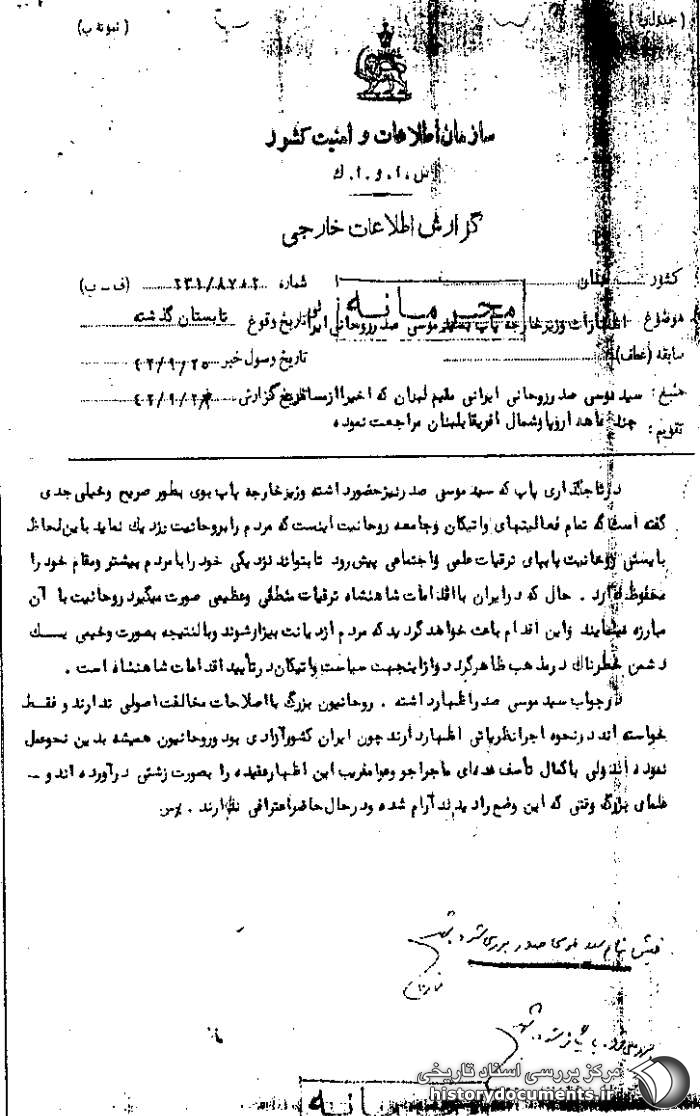 (نمونه ب)
سازمان اطلاعات و امنیت کشور
س.ا.و.ا.ک
گزارش اطلاعات خارجی
کشور لبنان
شماره ۲۳۱/۸۷۸۲ (ف-ب)
محرمانه
موضوع اظهارات وزیرخارجه پاپ بسید موسی صدر روحانی ایرانی
تاریخ وقوع تابستان گذشته
سابقه (عطف):
تاریخ وصول خبر ۴۲/۹/۲۵
منبع: سید موسی صدر روحانی ایرانی مقیم لبنان که اخیرا از مسافرت
تاریخ گزارش ۴۲/۹/۲
تقویم: چند ماهه اروپا و شمال افریقا بلبنان مراجعت نموده
در تاجگذاری پاپ که سید موسی صدر نیز حضور داشته وزیرخارجه پاپ بوی بطور صریح و خیلی جدی
گفته است که تمام فعالیتهای واتیکان و جامعه روحانیت اینست که مردم را بروحانیت نزدیک نماید باین لحاظ
بایستی روحانیت بپای ترقیات علمی و اجتماعی پیش رود تا بتواند نزدیکی خود را با مردم بیشتر و مقام خود را
محفوظ دارد . حال که در ایران با اقدامات شاهنشاه ترقیات منطقی و عظیمی صورت میگیرد روحانیت با آن
مبارزه مینمایند و این اقدام باعث خواهد گردید که مردم از دیانت بیزار شوند و بالنتیجه بصورت وخیمی یک
دشمن خطرناک در مذهب ظاهر گردد و از اینجهت سیاست واتیکان در تأیید اقدامات شاهنشاه است .
در جواب سید موسی صدر اظهار داشته . روحانیون بزرگ با اصلاحات مخالفت اصولی ندارند و فقط
خواسته اند در نحوه اجرا نظریاتی اظهار دارند چون ایران کشور آزادی بود و روحانیون همیشه بدین نحو عمل
نموده اند ولی با کمال تأسف عده‌ای ماجراجو و عوامفریب این اظهار عقیده را بصورت زشتی در آورده اند و -
علمای بزرگ وقتی که این وضع را دیدند آرام شده و در حال حاضر اعترافی ندارند . س
فیش بنام سید موسی صدر بررسی شود
مرکز بررسی اسناد تاریخی
historydocuments.ir
محرمانه